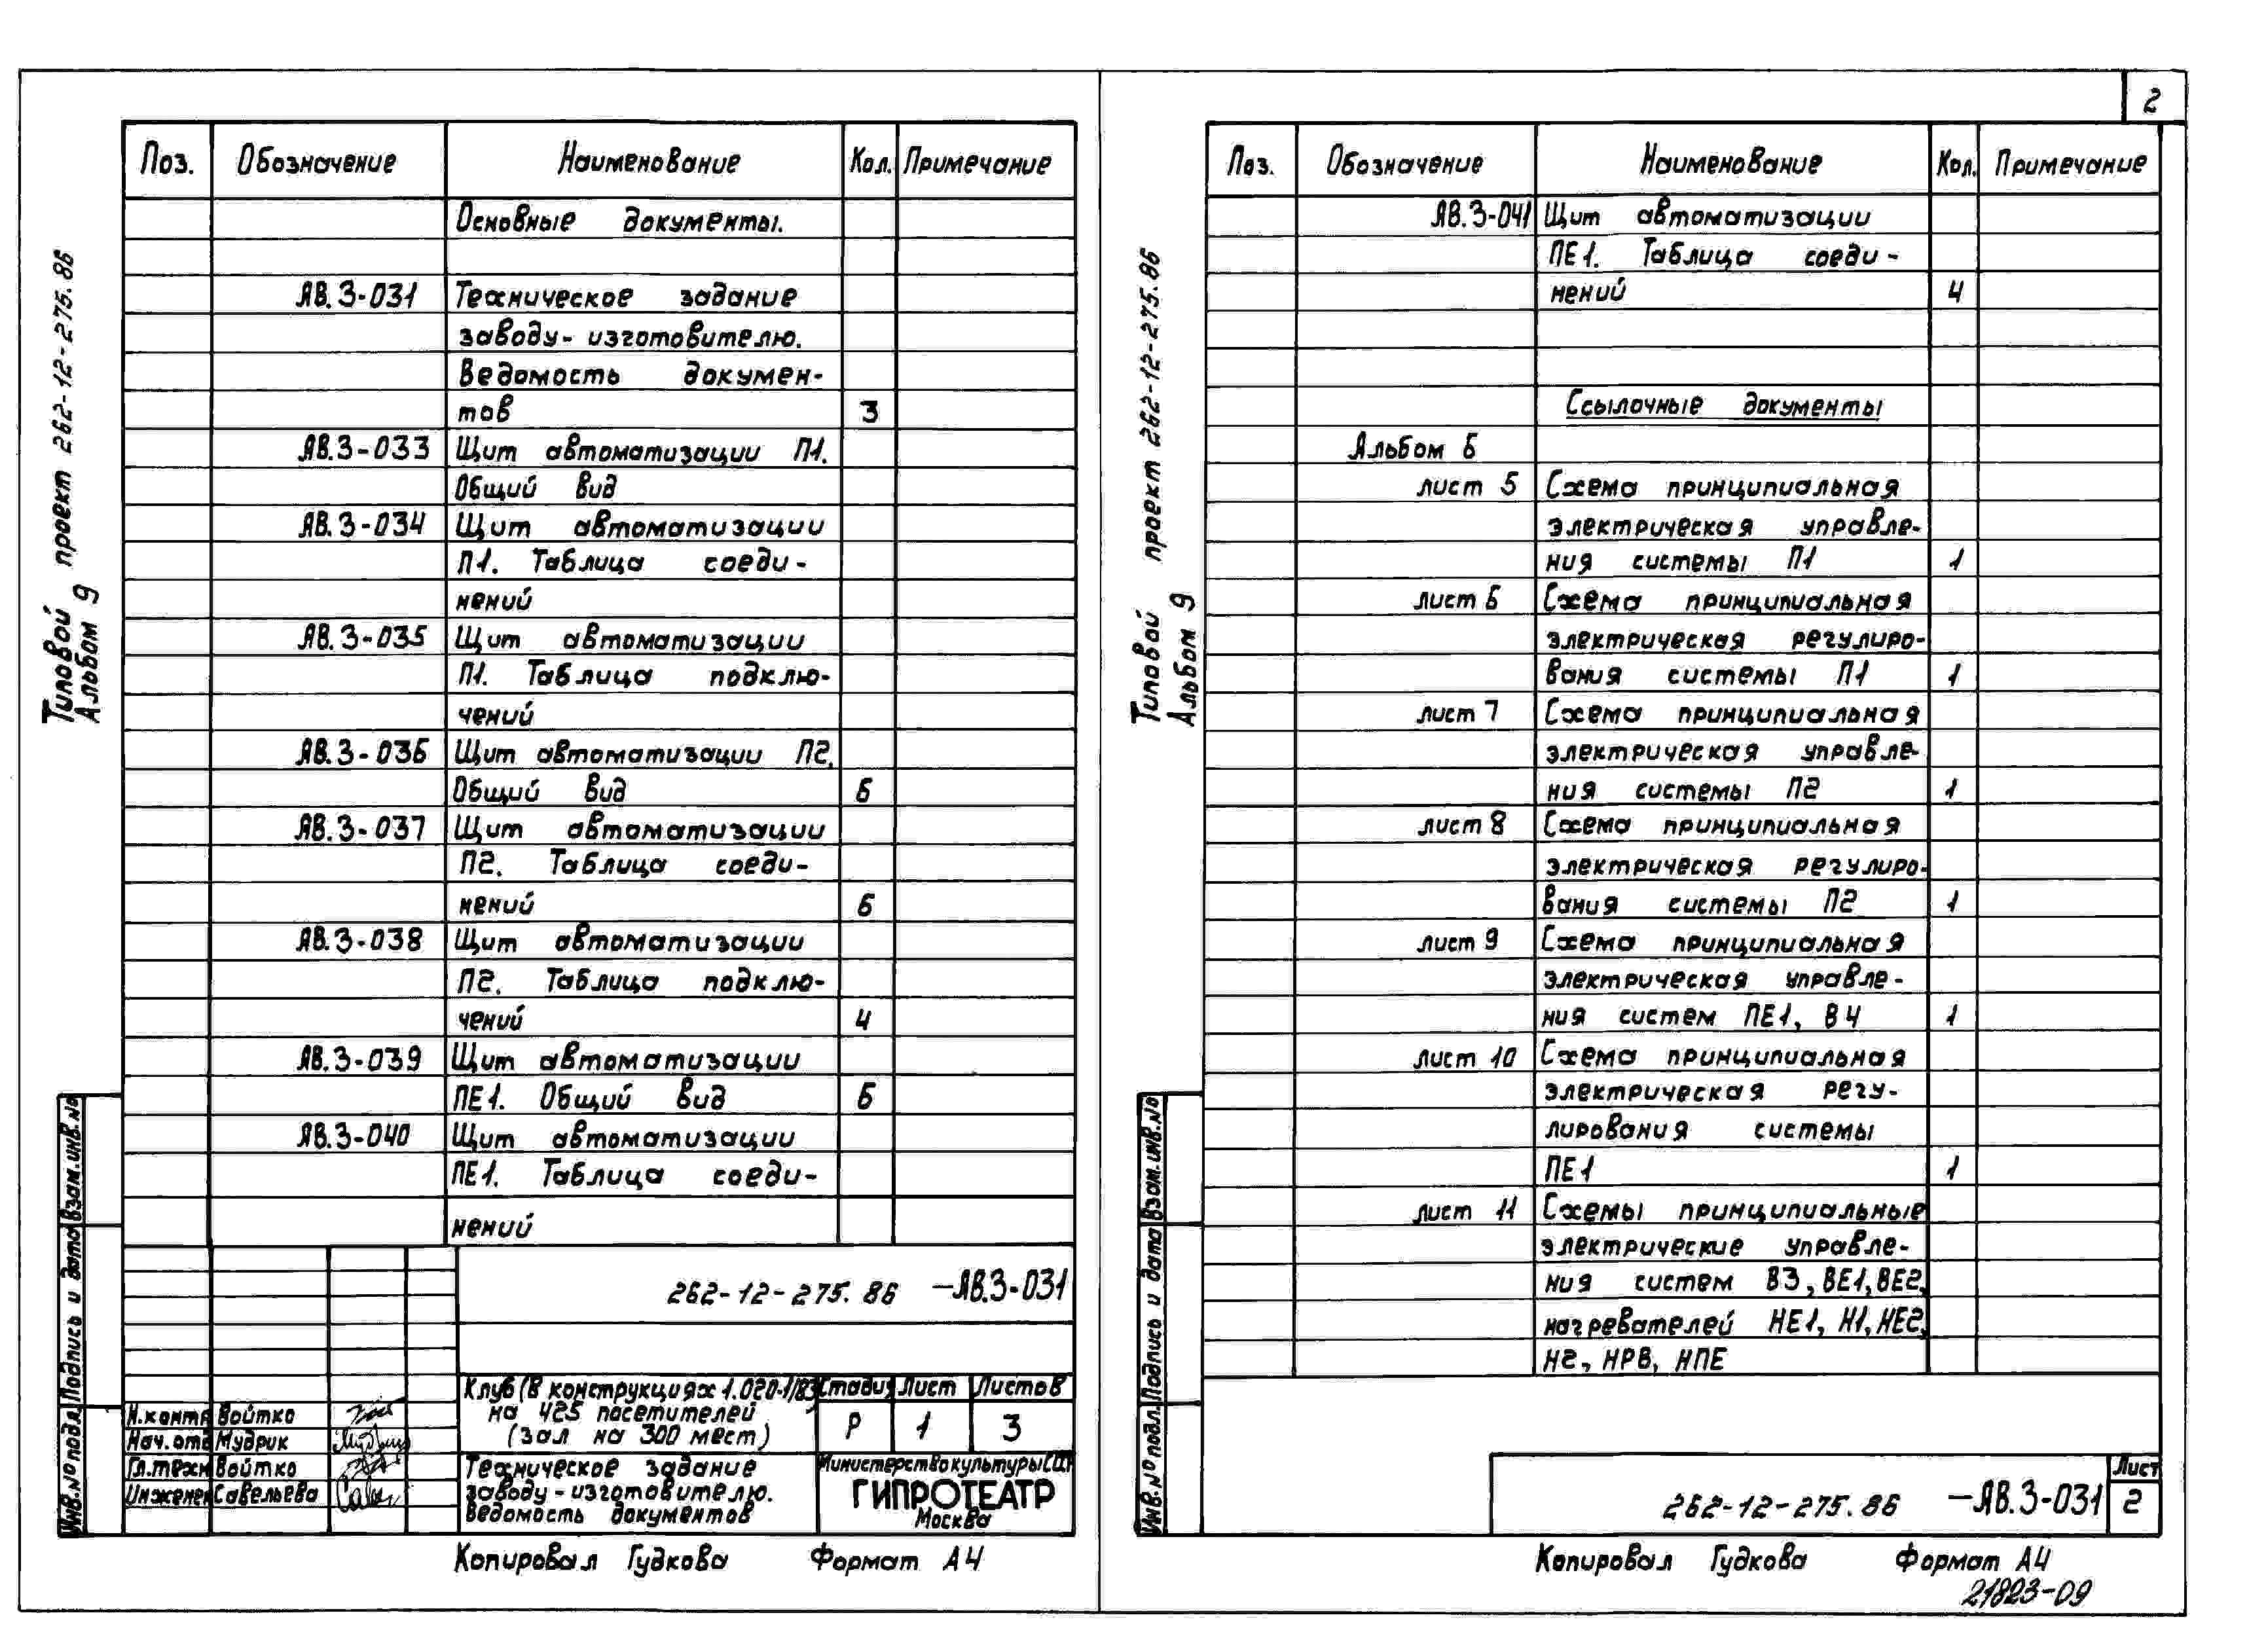 Типовой проект 262-12-275.86
Альбом 9
Поз. Обозначение Наименование Кол. Примечание
Основные документы.
ЯВ.3-031 Техническое задание
заводу-изготовителю.
Ведомость докумен-
тов 3
ЯВ.3-033 Щит автоматизации П1.
Общий вид
ЯВ.3-034 Щит автоматизации
П1. Таблица соеди-
нений
ЯВ.3-035 Щит автоматизации
П1. Таблица подклю-
чений
ЯВ.3-036 Щит автоматизации П2.
Общий вид 6
ЯВ.3-037 Щит автоматизации
П2. Таблица соеди-
нений 6
ЯВ.3-038 Щит автоматизации
П2. Таблица подклю-
чений 4
ЯВ.3-039 Щит автоматизации
ПЕ1. Общий вид 6
ЯВ.3-040 Щит автоматизации
ПЕ1. Таблица соеди-
нений
262-12-275.86 -ЯВ.3-031
Клуб (в конструкциях 1.020-1/83)
на 425 посетителей
(зал на 300 мест)
Стадия Лист Листов
Р 1 3
Н.контр Войтко
Нач.отд Мудрик
Гл.техн Войтко
Инженер Савельева
Техническое задание
заводу-изготовителю.
Ведомость документов
Министерство культуры СССР
ГИПРОТЕАТР
Москва
Инв.№ подл. Подпись и дата Взам.инв.№
Копировал Гудкова Формат А4
2
Типовой проект 262-12-275.86
Альбом 9
Поз. Обозначение Наименование Кол. Примечание
ЯВ.3-041 Щит автоматизации
ПЕ1. Таблица соеди-
нений 4
Ссылочные документы
Альбом 6
лист 5 Схема принципиальная
электрическая управле-
ния системы П1 1
лист 6 Схема принципиальная
электрическая регулиро-
вания системы П1 1
лист 7 Схема принципиальная
электрическая управле-
ния системы П2 1
лист 8 Схема принципиальная
электрическая регулиро-
вания системы П2 1
лист 9 Схема принципиальная
электрическая управле-
ния систем ПЕ1, В4 1
лист 10 Схема принципиальная
электрическая регу-
лирования системы
ПЕ1 1
лист 11 Схемы принципиальные
электрические управле-
ния систем В3, ВЕ1, ВЕ2,
нагревателей НЕ1, Н1, НЕ2,
Н2, НРВ, НПЕ
262-12-275.86 -ЯВ.3-031
Лист
2
Инв.№ подл. Подпись и дата Взам.инв.№
Копировал Гудкова Формат А4
21823-09